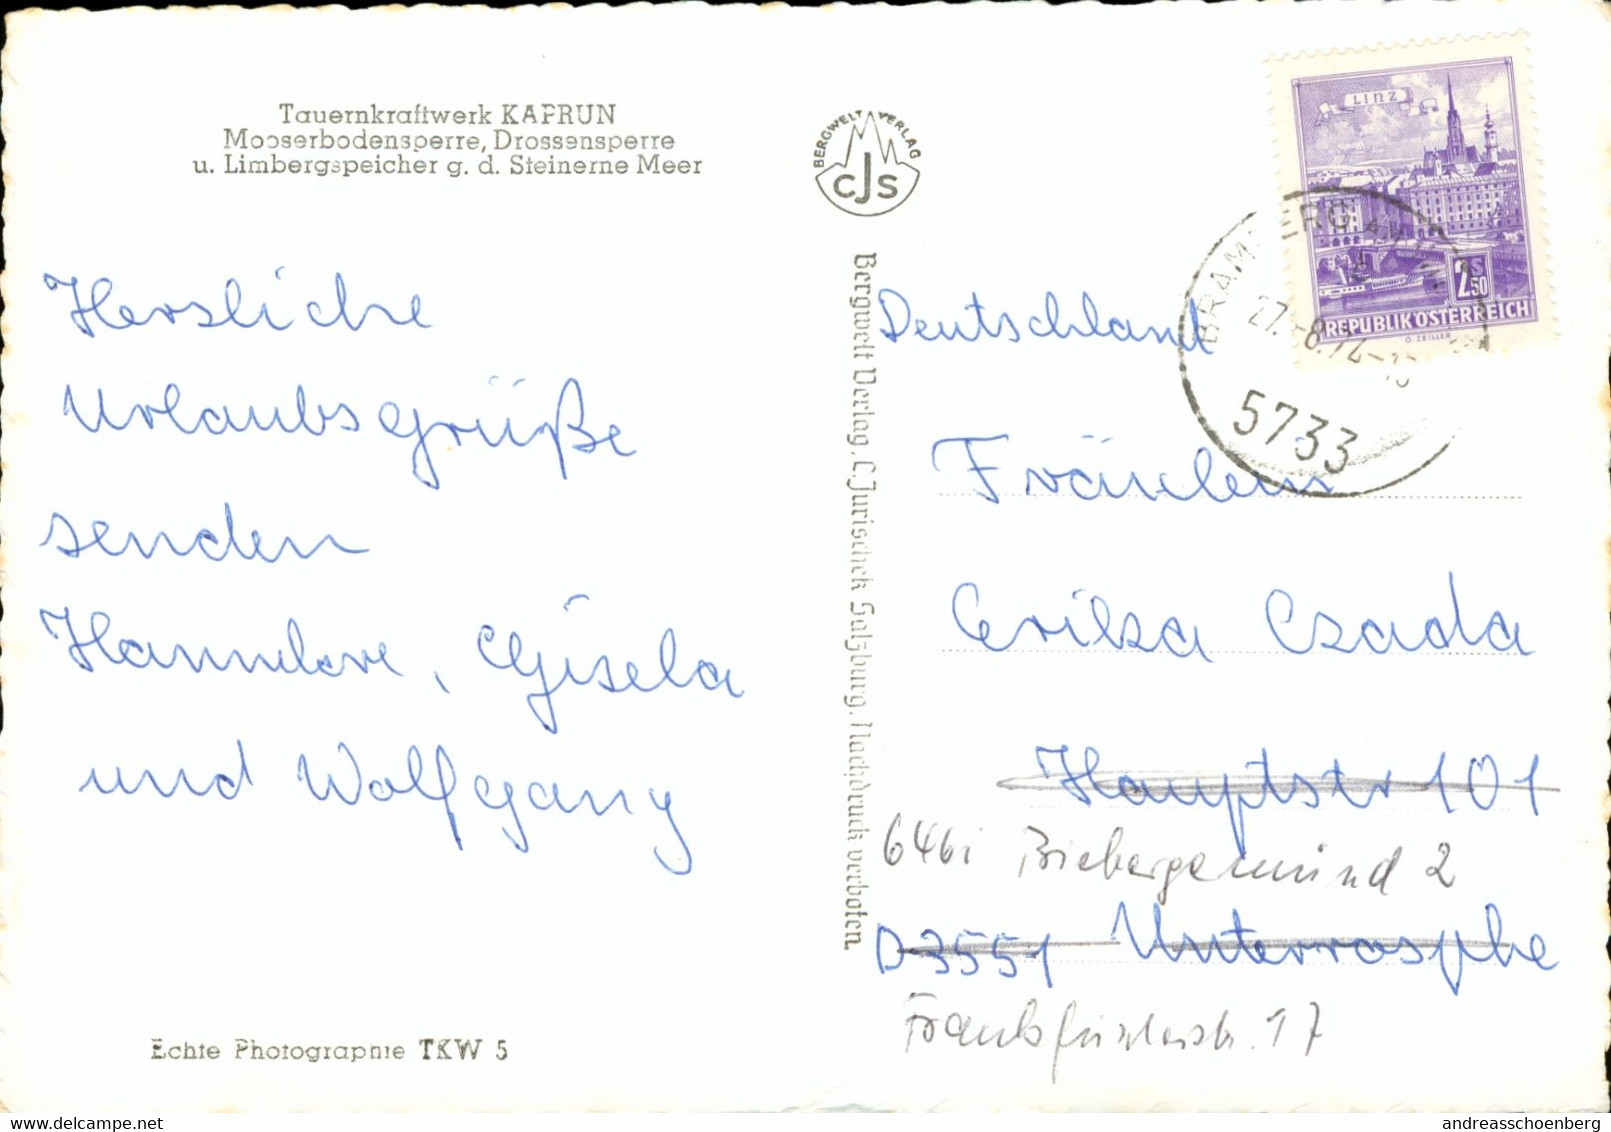 Tauernkraftwerk KAPRUN
Mooserbodensperre, Drossensperre
u. Limbergspeicher g. d. Steinerne Meer
BERGWELT VERLAG
CJS
LINZ
2 S 50
REPUBLIK ÖSTERREICH
O. ZEILLER
27.-8.74
5733
Herzliche
Urlaubsgrüße
senden
Hannelore, Gisela
und Wolfgang
Echte Photographie TKW 5
Bergwelt Verlag, C. Jurischek Salzburg. Nachdruck verboten.
Deutschland
Fräulein
Erika Czada
Hauptstr 101
6461 Biebergemünd 2
D 3551 Unterrosphe
Frankfurterstr. 17
andreasschoenberg